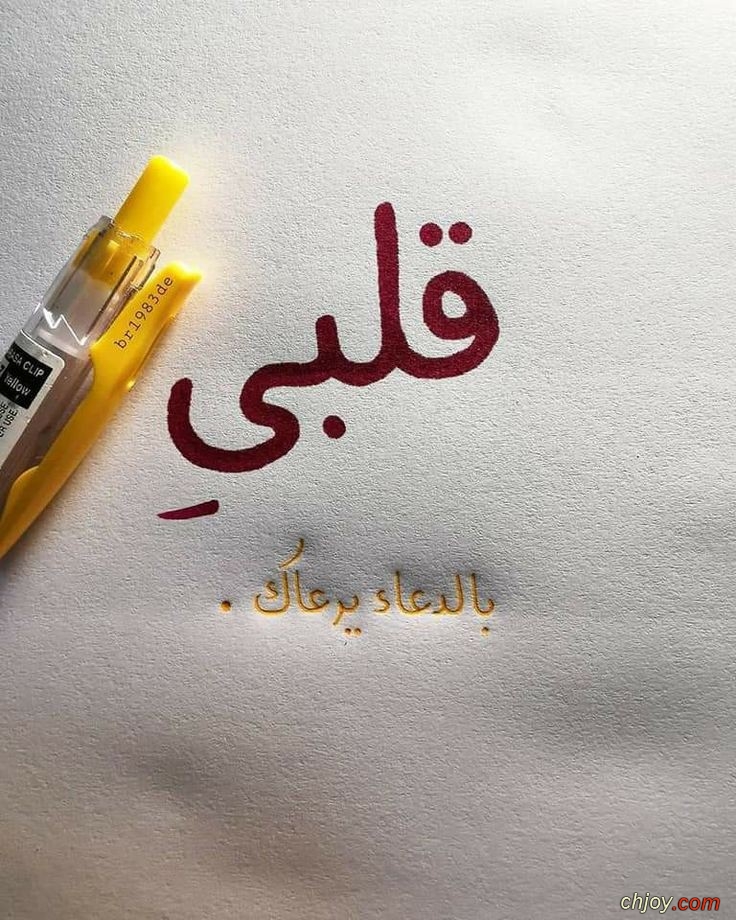 قلبيِ
بالدعاء يرعاكَ .
br1983de
ASA CLIP
Yellow
chjoy.com